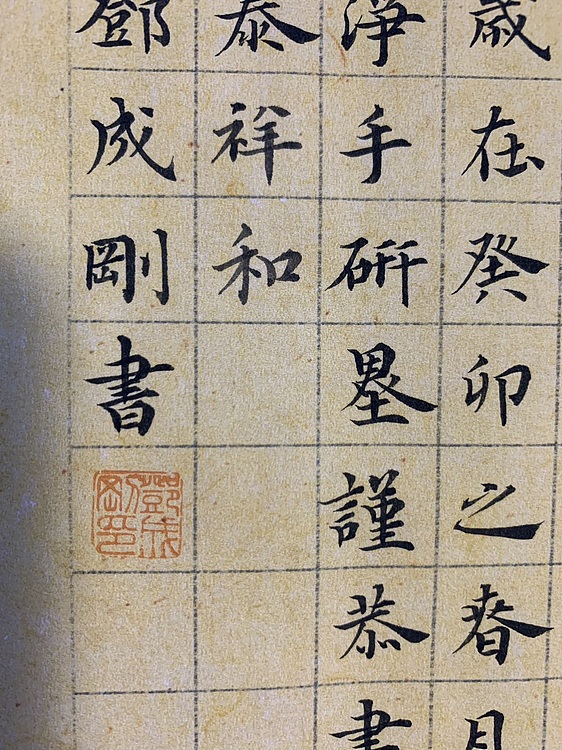 歲在癸卯之春月
淨手硏墨謹恭書
泰祥和
鄧成剛書
鄧成剛印